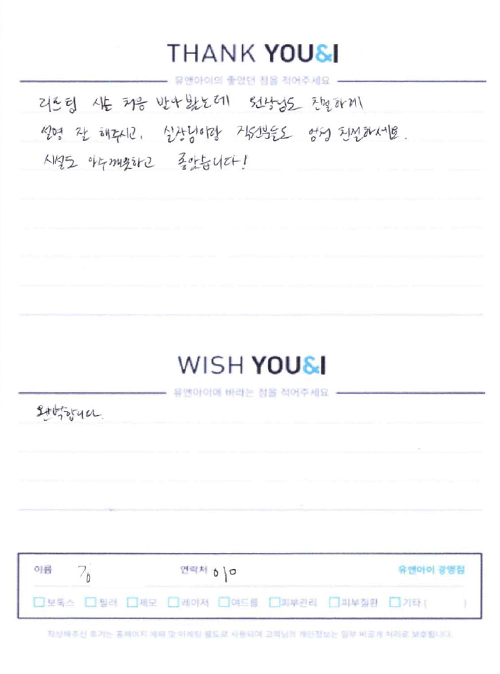 THANK YOU&I
유앤아이의 좋았던 점을 적어주세요
리프팅 시술 처음 받아봤는데 원장님도 친절하게
설명 잘 해주시고, 실장님이랑 직원분들도 엄청 친절하세요.
시설도 아주깨끗하고 좋았습니다!
WISH YOU&I
유앤아이에 바라는 점을 적어주세요
완벽합니다.
이름 김 연락처 010 유앤아이 광명점
보톡스 필러 제모 레이저 여드름 피부관리 피부질환 기타 ( )
작성해주신 후기는 홈페이지 게재 및 마케팅 용도로 사용되며 고객님의 개인정보는 일부 비공개 처리로 보호됩니다.